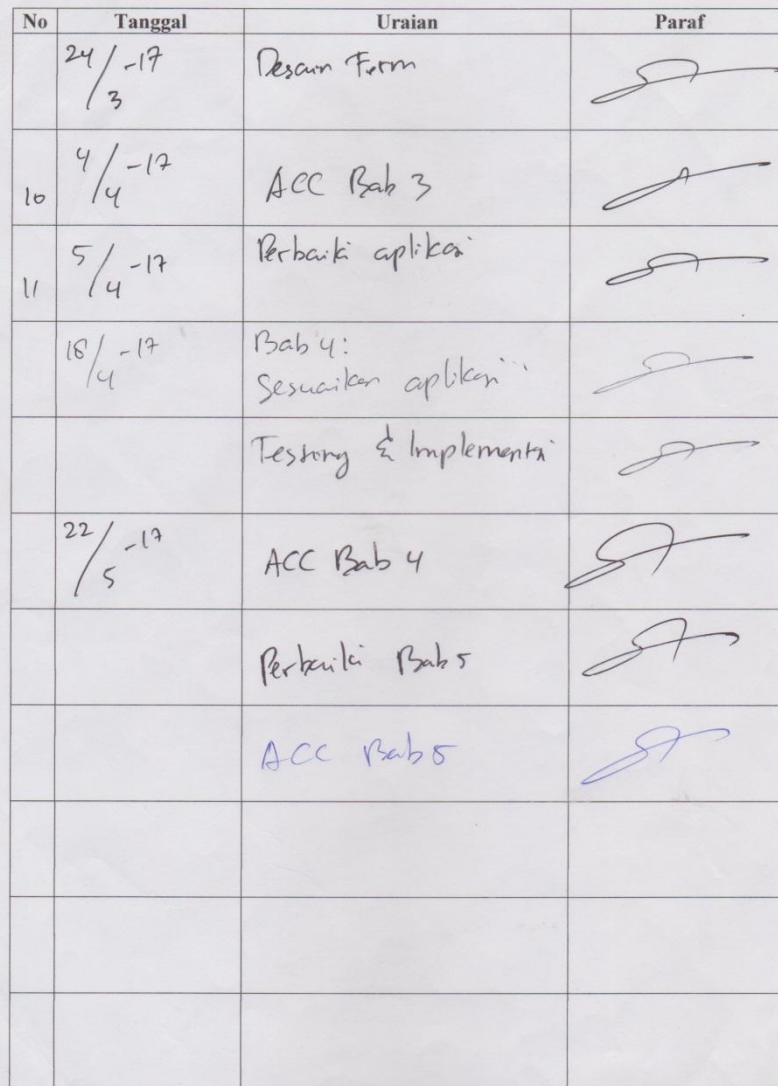 No Tanggal Uraian Paraf
24/3 -17 Desain Form
10 4/4 -17 ACC Bab 3
11 5/4 -17 Perbaiki aplikasi
18/4 -17 Bab 4:
Sesuaikan aplikasi
Testing & Implementasi
22/5 -17 ACC Bab 4
Perbaiki Bab 5
ACC Bab 5